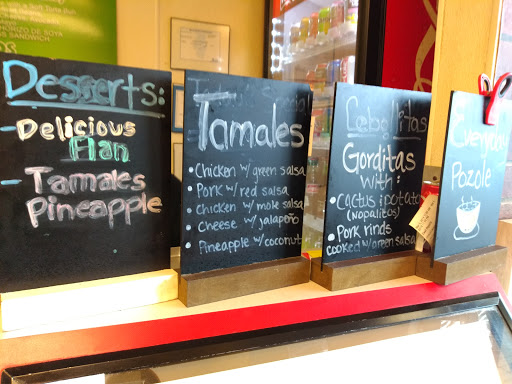 CHORIZO DE SOYA
SANDWICH
Desserts:
- Delicious
Flan
- Tamales
Pineapple
Tamales
• Chicken w/ green salsa
• Pork w/ red salsa
• Chicken w/ mole salsa
• Cheese w/ jalapeño
• Pineapple w/ coconut
Gorditas
with:
• Cactus & potato
(Nopalitos)
• Pork rinds
cooked w/ green salsa
Everyday
Pozole